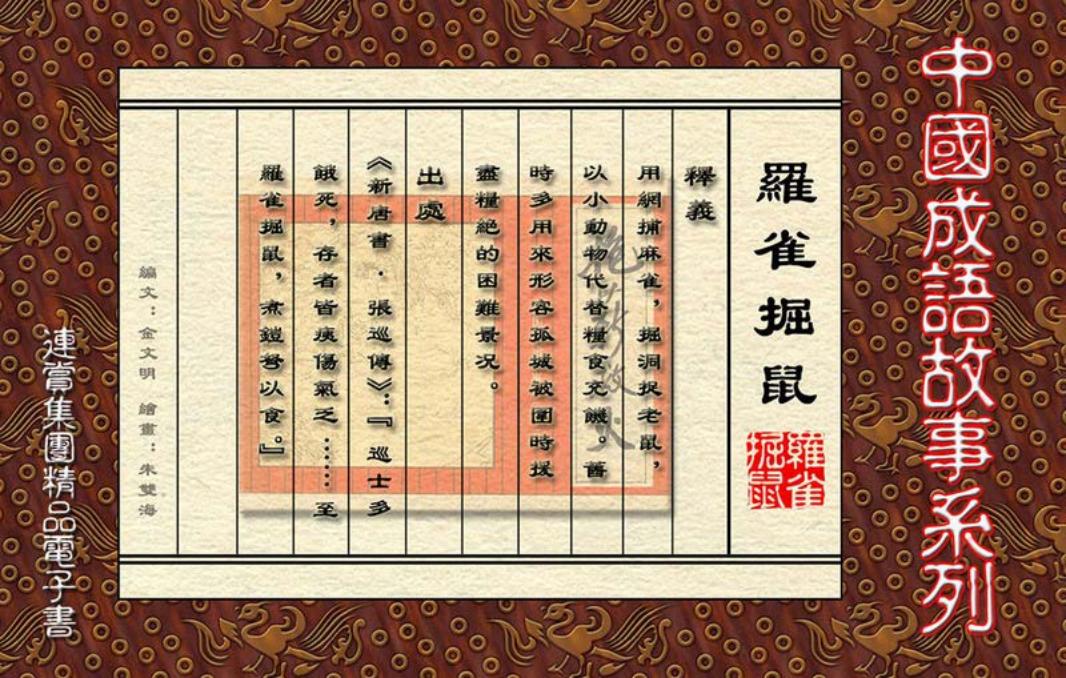 中國成語故事系列
羅雀掘鼠
羅雀
掘鼠
釋義
用網捕麻雀，掘洞捉老鼠，
以小動物代替糧食充饑。舊
時多用來形容孤城被圍時援
盡糧絕的困難景況。
出處
《新唐書·張巡傳》：『巡士多
餓死，存者皆痍傷氣乏……至
羅雀掘鼠，煮鎧弩以食。』
編文：金文明 繪畫：朱雙海
連賞集團精品電子書